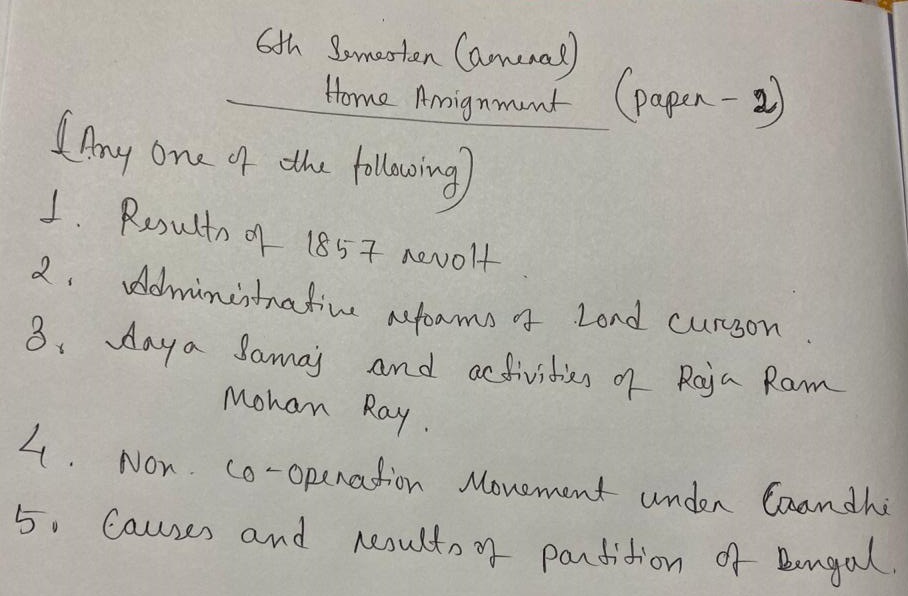 6th Semester (General)
Home Assignment (paper - 2)
(Any one of the following)
1. Results of 1857 revolt.
2. Administrative reforms of Lord Curzon.
3. Arya Samaj and activities of Raja Ram
Mohan Ray.
4. Non. Co-operation Movement under Gandhi
5. Causes and results of partition of Bengal.